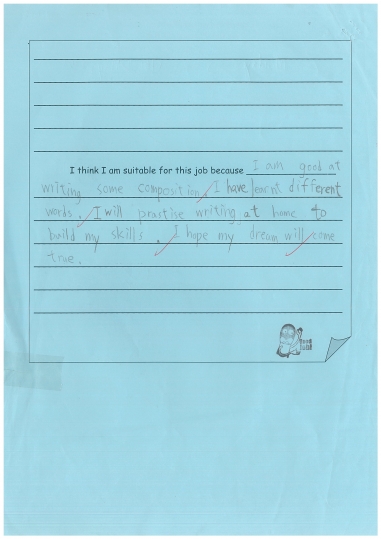 I think I am suitable for this job because I am good at
writing some composition. I have learnt different
words. I will practise writing at home to
build my skills. I hope my dream will come
true.
Good Job!